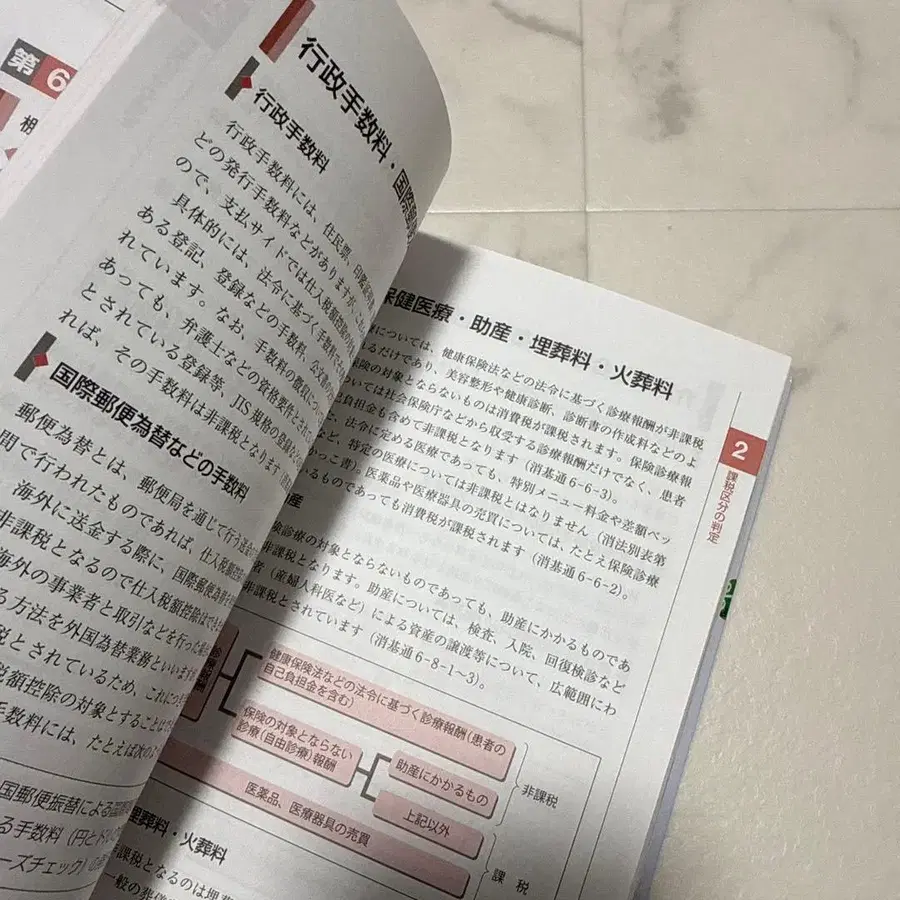 第6
相
行政手数料・国際郵
行政手数料
行政手数料には、住民票、印鑑証明
どの発行手数料などがありますが、
ので、支払サイドでは仕入税額控除の
具体的には、法令に基づく手数料で
ある登記、登録などの手数料、公文書の
れています。なお、手数料の徴収につ
あっても、弁護士などの資格要件とされ
とされている登録等、JIS規格の登録など
れば、その手数料は非課税となります
国際郵便為替などの手数料
郵便為替とは、郵便局を通じて行う送金
間で行われたものであれば、仕入税額控除
海外に送金する際に、国際郵便為替
非課税となるので仕入税額控除はでき
海外の事業者と取引などを行った場合
る方法を外国為替業務といいます
税とされているため、これにつ
税額控除の対象とすることは
手数料には、たとえば次の
国郵便振替による国際
る手数料（円とド
ーズチェック）の
保健医療・助産・埋葬料・火葬料
については、健康保険法などの法令に基づく診療報酬が非課税
れるだけであり、美容整形や健康診断、診断書の作成料などのよ
保険の対象とならないものは消費税が課税されます。保険診療報
ついては社会保険庁などから収受する診療報酬だけでなく、患者
己負担金も含めて非課税となります（消基通6-6-3）。
し、法令に定める医療であっても、特別メニュー料金や差額ベッ
など、特定の医療については非課税とはなりません（消法別表第
かっこ書）。医薬品や医療器具の売買については、たとえ保険診療
のものであっても消費税が課税されます（消基通6-6-2）。
産
険診療の対象とならないものであっても、助産にかかるものであ
非課税となります。助産については、検査、入院、回復検診など
者（産婦人科医など）による資産の譲渡等について、広範囲にわ
非課税とされています（消基通6-8-1〜3）。
診療報酬
健康保険法などの法令に基づく診療報酬（患者の
自己負担金を含む）
保険の対象とならない
診療（自由診療）報酬
助産にかかるもの
上記以外
医薬品、医療器具の売買
非課税
課 税
埋葬料・火葬料
非課税となるのは埋葬
一般の葬儀
2
課税区分の判定